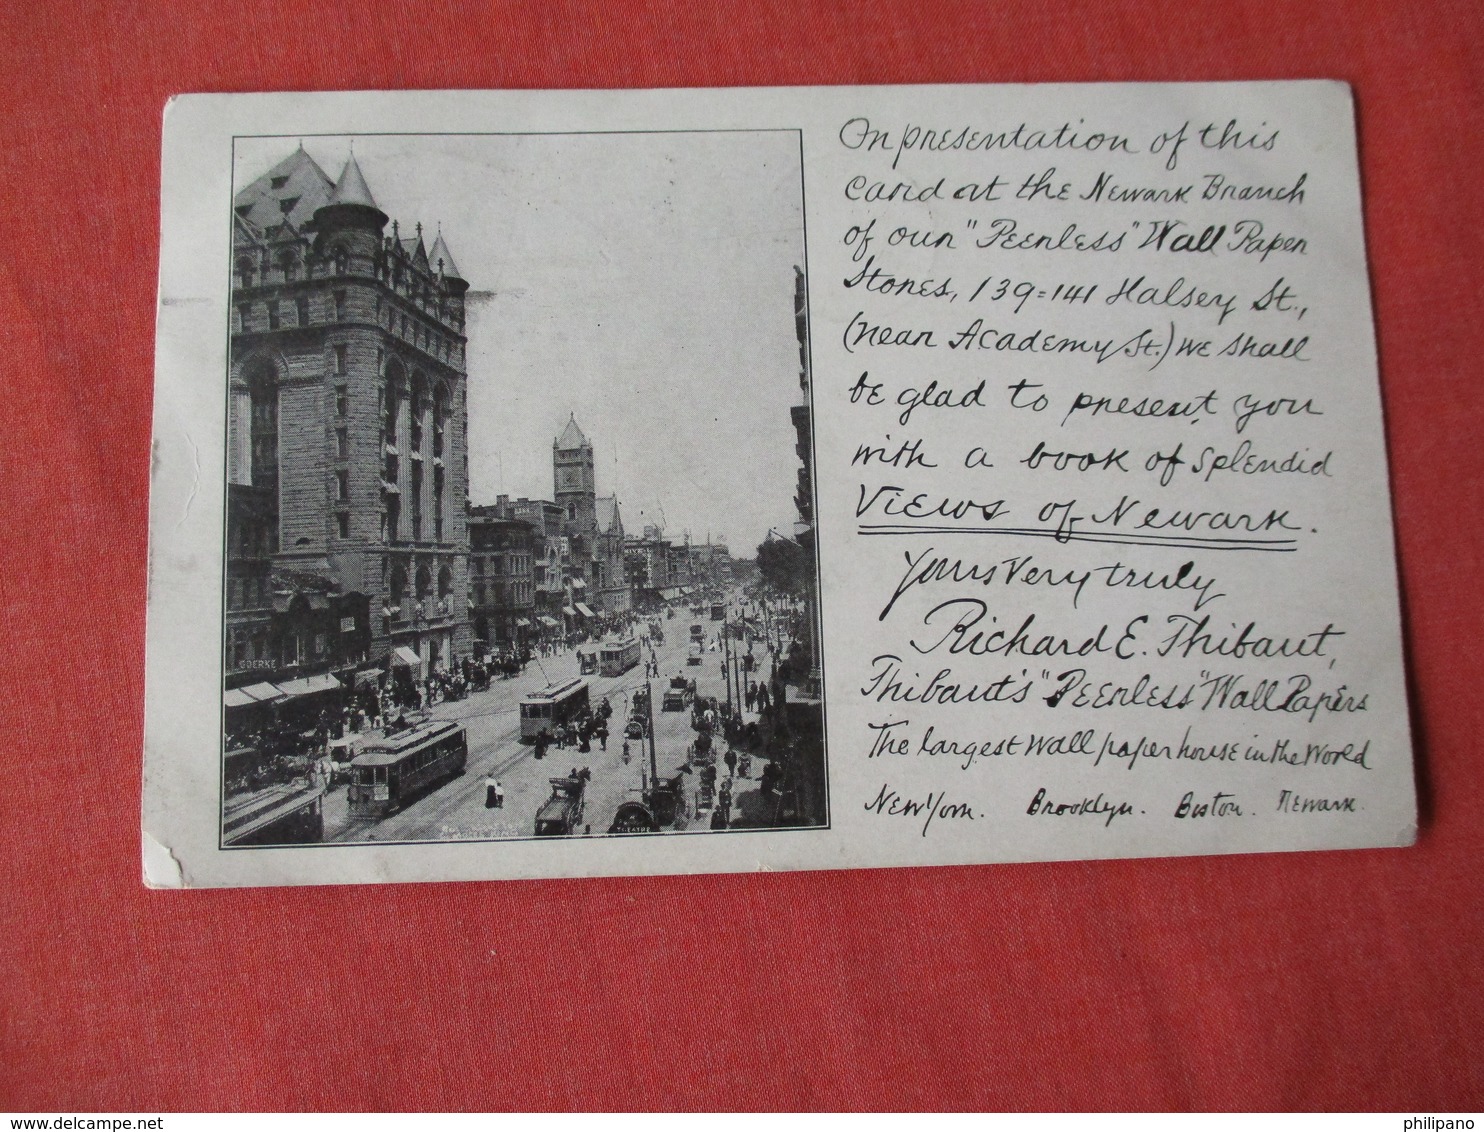 On presentation of this
card at the Newark Branch
of our "Peerless" Wall Paper
Stores, 139=141 Halsey St.,
(near Academy St.) we shall
be glad to present you
with a book of splendid
Views of Newark.
Yours very truly
Richard E. Thibaut,
Thibaut's "Peerless" Wall Papers
The largest wall paper house in the World
New York. Brooklyn. Boston. Newark.
GOERKE
THEATRE
delcampe.net
philipano